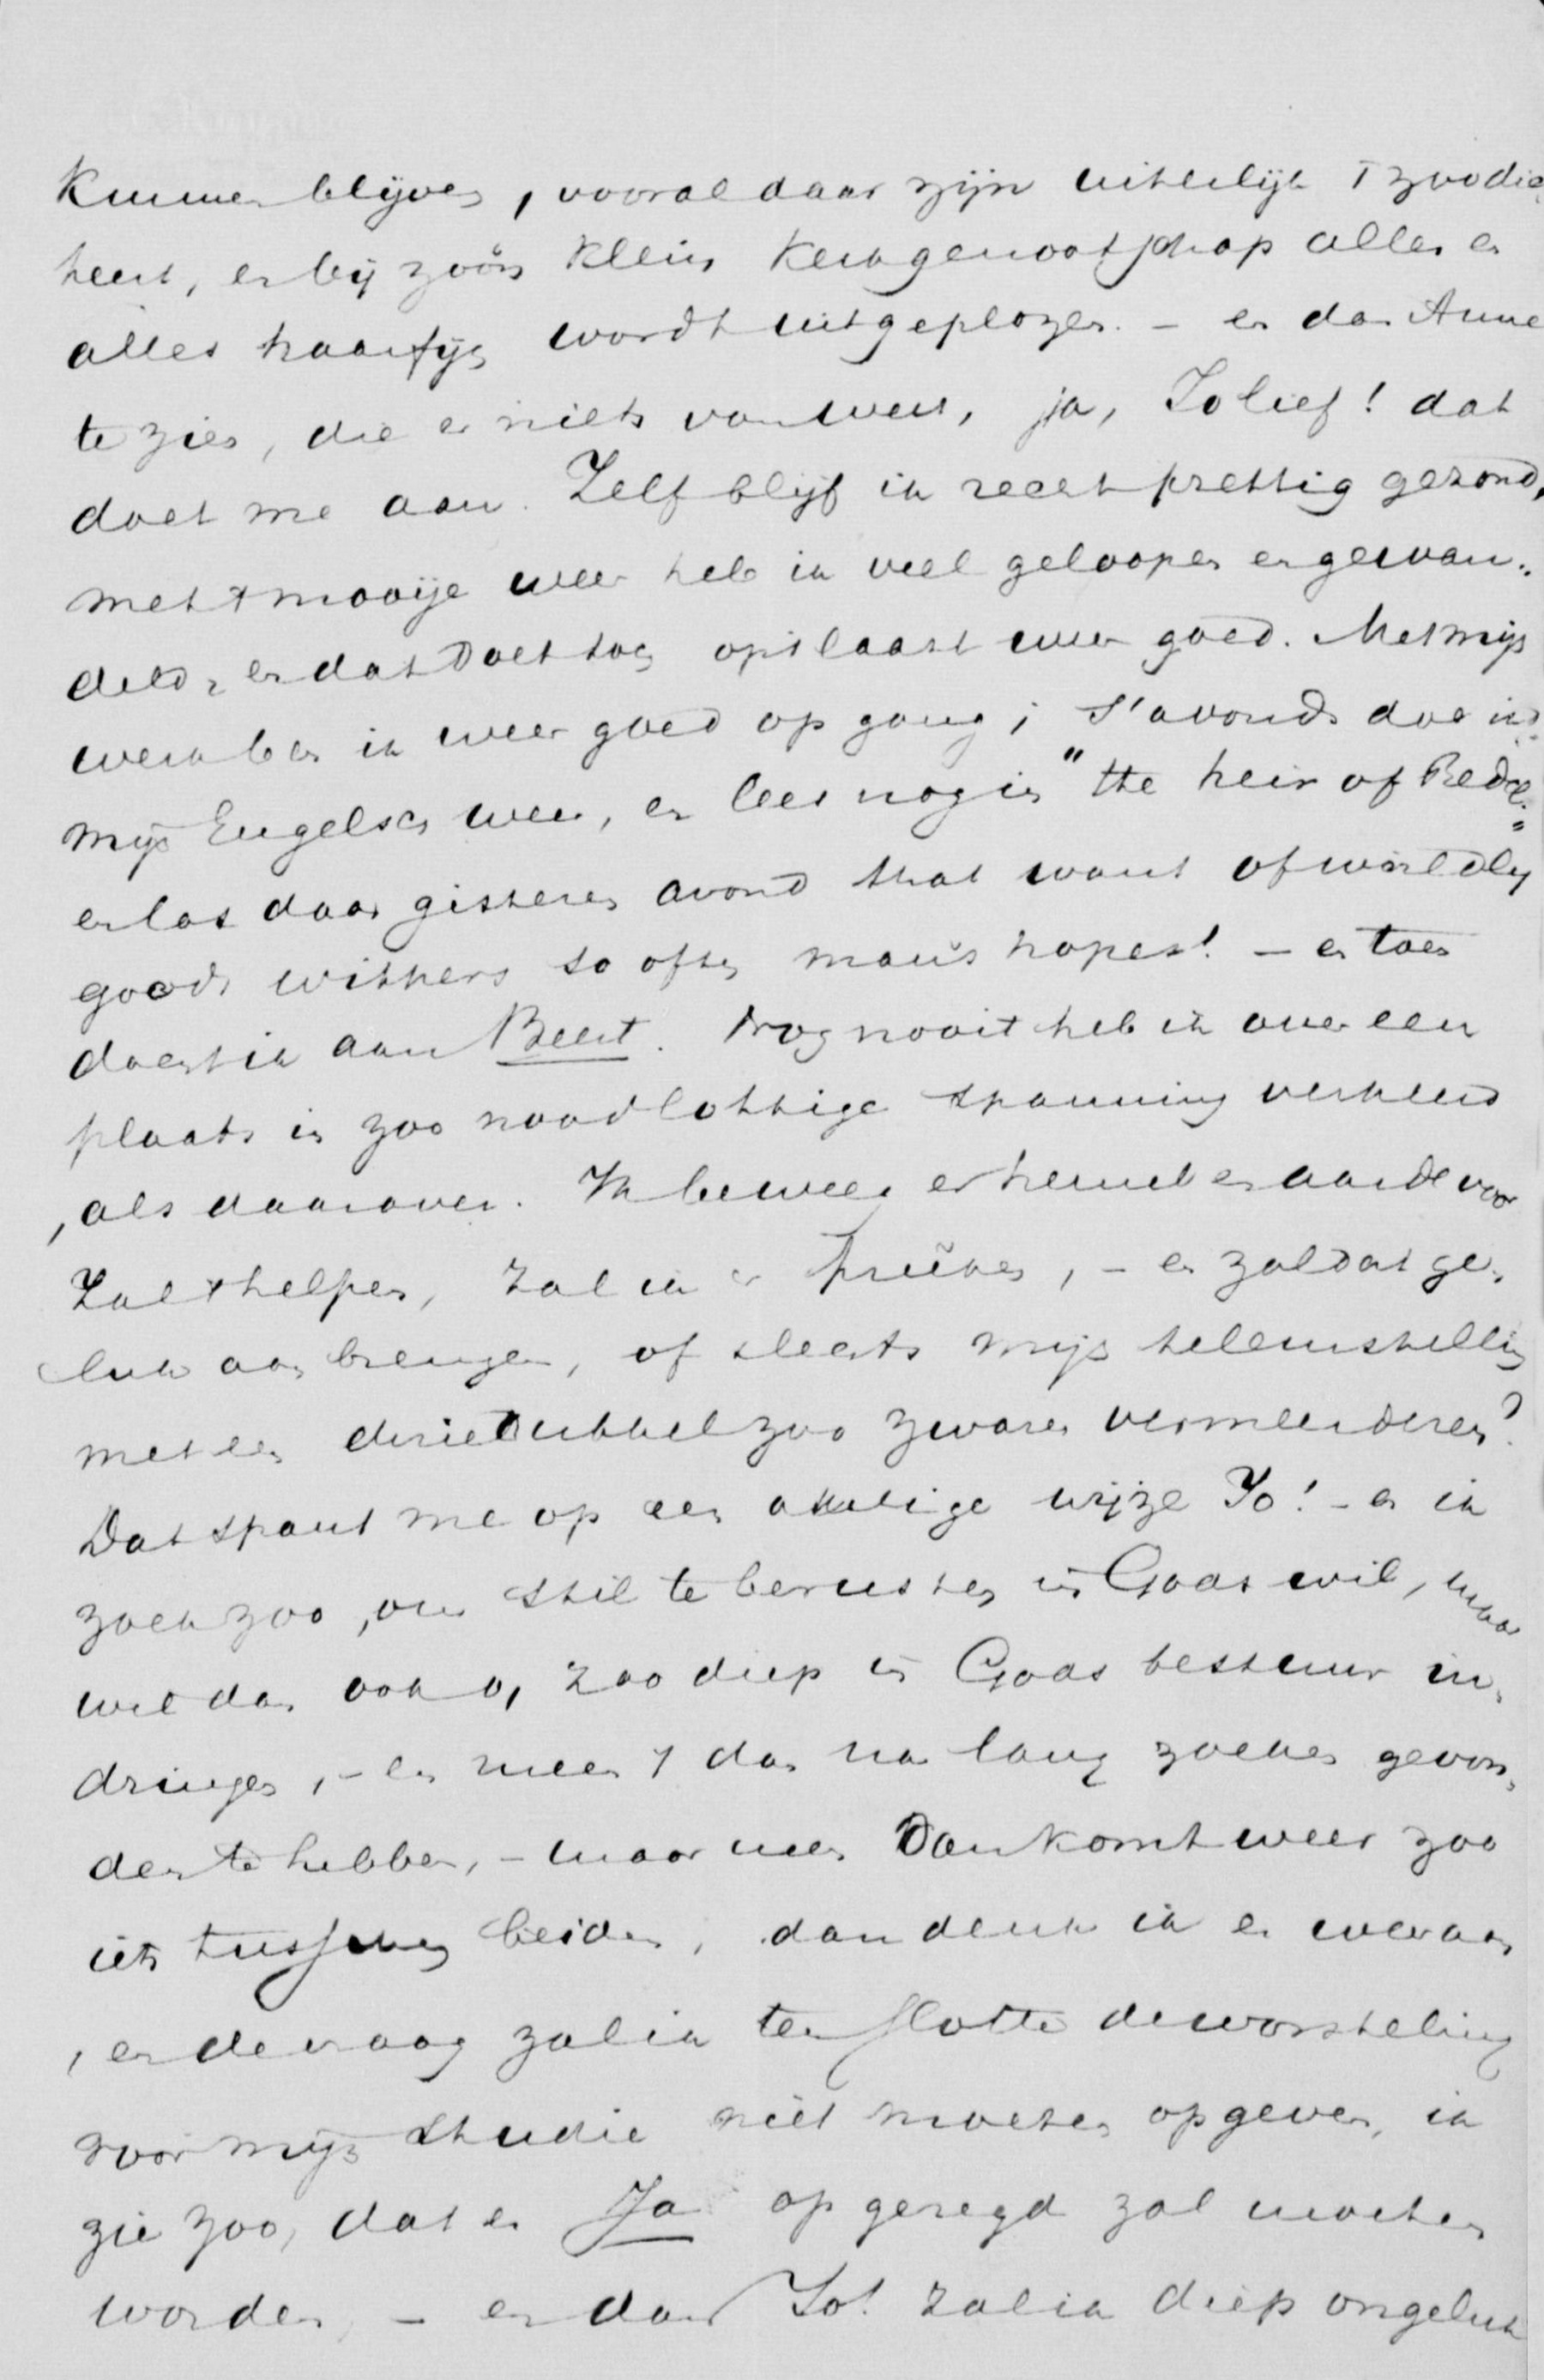 kunnen blijven, vooral daar zijn uiterlijk 't zoodie
heeft, en bij zoo'n klein kerkgenootschap alles en
alles haarfijn wordt uitgeplozen. – en dan Anne
te zien, die er niets van weet, ja, Jo lief! dat
doet me aan. Zelf blijf ik recht prettig gezond,
met 't mooije weer heb ik veel geloopen en gewan„
deld, en dat doet toch op 't laatst weer goed. Met mijn
werk ben ik weer goed op gang; 's'avonds doe ik
mijn Engelsch weer, en lees nog in "the heir of Redc„
en las daar gisteren avond that want of worldly
goods withers so often man's hopes! – en toen
dacht ik aan Beert. Nog nooit heb ik over een
plaats in zoo noodlottige spanning verkeerd
, als daarover. Ik beweeg er hemel en aarde voor
Zal 't helpen, zal ik er preêken, – en zal dat ge„
luk aan brengen, of slechts mijn teleurstelling
met een driedubbel zoo zware vermeerderen?
Dat spant me op een akelige wijze Jo! – en ik
zoek zoo, om stil te berusten in Gods wil, maar
wil dan ook o, zoo diep in Gods bestuur in„
dringen, – en meen 't dan na lang zoeken gevon„
den te hebben, – maar neen Dan komt weer zoo
iets tusschen beiden, dan denk ik er weer aan
, en de vraag zal ik ten slotte de worsteling
voor mijn studie niet moeten opgeven, ik
zie zoo, dat er Ja op gezegd zal moeten
worden, – en dan Jo! zal ik diep ongeluk